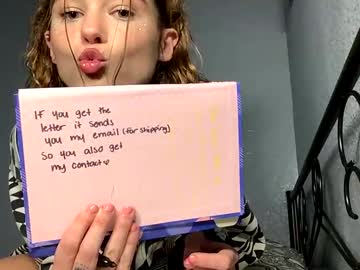 If you get the
letter it sends
you my email (for shipping)
So you also get
my contact ♡